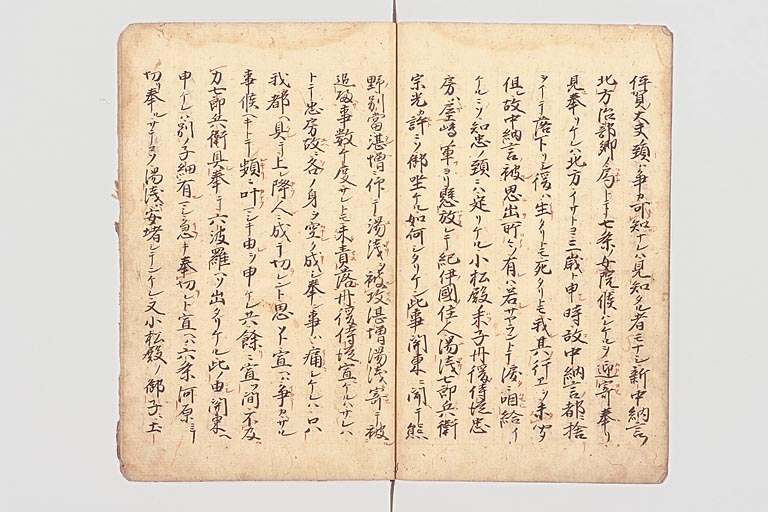 伊賀大夫頸ハ争カ可知ナレハ見知タル者モナシ新中納言ノ
北方治部卿ノ局トテ七条女院候ハレケルヲ迎寄奉リ
見奉リケレハ北方イサトヨ三歳ト申時故中納言都ニ捨
ヲイテ落下リシ後ハ生タリトモ死タリトモ我其行エヲ未聞
但シ故中納言被思出所ノ有ハ若サヤラントテ涙ニ咽給イ
ケルニソ知忠頸ニハ定リケル小松殿末子丹後侍従忠
房ハ屋嶋ノ軍ヨリ懸放レテ紀伊國住人湯浅七郎兵衛
宗光カ許ニソ御坐ケル如何シタリケン此事関東ニ聞テ熊
野別當湛増ニ作テ湯浅ヲ被攻湛増湯浅ニ寄テ被
追歸事数ケ度サレトモ未責落丹後侍従宣ケルハサレハ
トテ忠房故ニ各ノ身ヲ空ク成シ奉ン事ハ痛シケレハ只ハ
我都ヘ具テ上レ降人ニ成テ切レント思フト宣ハ争カサル
事候ヘキトテ頻ニ叶マシキ由ヲ申ケレ共餘ニ宣フ間不及
力七郎兵衛具奉リテ六波羅ヘソ出タリケル此由関東ヘ
申ケレハ別ノ子細有マシ急キ奉切レト宣ハ六条河原ニテ
切奉ルサテコソ湯浅ハ安堵シテンケレ又小松殿ノ御子ニ土